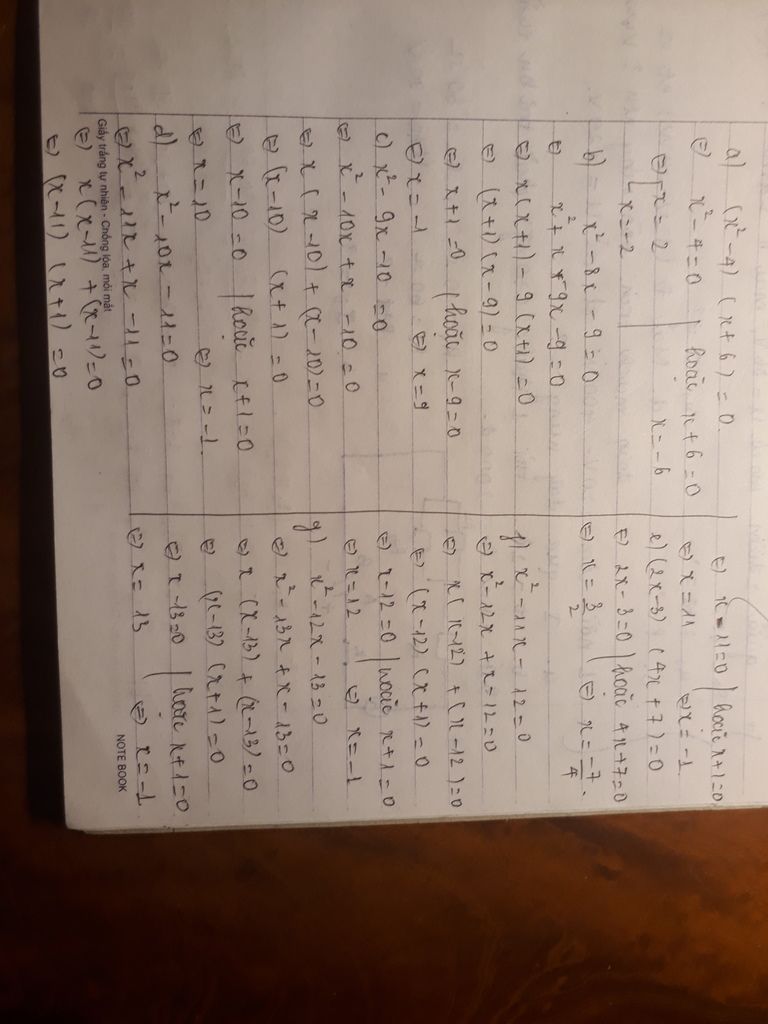 a) (x² - 4) (x + 6) = 0.
⇔ x² - 4 = 0 | hoặc x + 6 = 0
⇔ [x = 2 x = -6
x = -2
b) x² - 8x - 9 = 0
⇔ x² + x - 9x - 9 = 0
⇔ x(x+1) - 9(x+1) = 0
⇔ (x+1)(x-9) = 0
⇔ x+1 = 0 | hoặc x-9 = 0
⇔ x = -1 ⇔ x = 9
c) x² - 9x - 10 = 0
⇔ x² - 10x + x - 10 = 0
⇔ x(x-10) + (x-10) = 0
⇔ (x-10) (x+1) = 0
⇔ x-10 = 0 | hoặc x+1 = 0
⇔ x = 10 ⇔ x = -1
d) x² - 10x - 11 = 0
⇔ x² - 11x + x - 11 = 0
Giấy trắng tự nhiên - Chống lóa, mỏi mắt
⇔ x(x-11) + (x-11) = 0
⇔ (x-11) (x+1) = 0
⇔ x - 11 = 0 | hoặc x+1 = 0
⇔ x = 11 ⇔ x = -1
e) (2x-3) (4x+7) = 0
⇔ 2x - 3 = 0 | hoặc 4x+7 = 0
⇔ x = 3/2 ⇔ x = -7/4.
f) x² - 11x - 12 = 0
⇔ x² - 12x + x - 12 = 0
⇔ x(x-12) + (x-12) = 0
⇔ (x-12) (x+1) = 0
⇔ x-12 = 0 | hoặc x+1 = 0
⇔ x = 12 ⇔ x = -1
g) x² - 12x - 13 = 0
⇔ x² - 13x + x - 13 = 0
⇔ x (x-13) + (x-13) = 0
⇔ (x-13) (x+1) = 0
⇔ x-13 = 0 | hoặc x+1 = 0
⇔ x = 13 ⇔ x = -1
NOTE BOOK